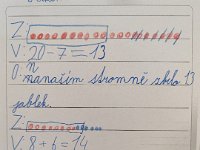 Z:
V: 20-7=13
O: Na
našim stromně zbilo 13
jablek.
Z:
V: 8+6=14